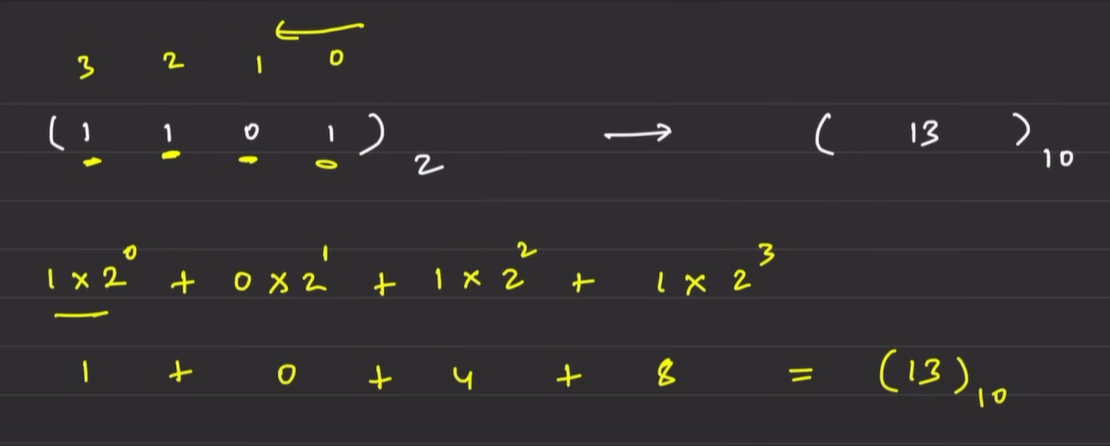 3 2 1 0
(1 1 0 1)₂ → ( 13 )₁₀
1 × 2⁰ + 0 × 2¹ + 1 × 2² + 1 × 2³
1 + 0 + 4 + 8 = (13)₁₀